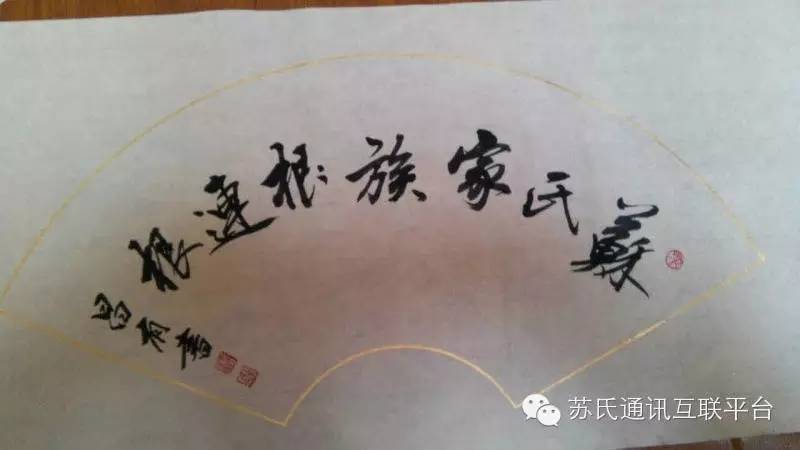 蘇氏家族根連根
昌有書
苏氏通讯互联平台